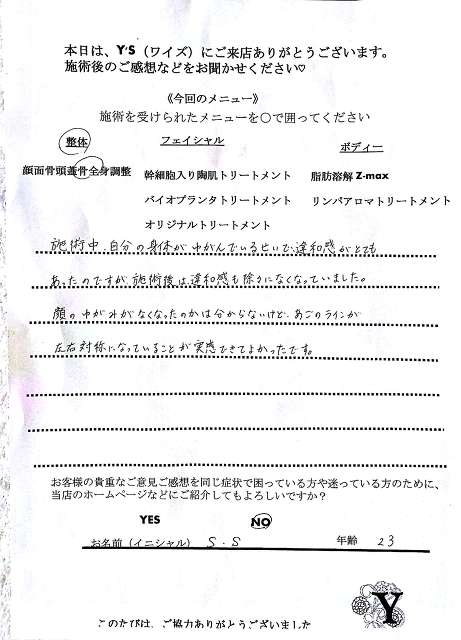 本日は、Y'S（ワイズ）にご来店ありがとうございます。
施術後のご感想などをお聞かせください♡
《今回のメニュー》
施術を受けられたメニューを〇で囲ってください
整体 フェイシャル ボディー
顔面骨頭蓋骨全身調整 幹細胞入り陶肌トリートメント 脂肪溶解 Z-max
バイオプランタトリートメント リンパアロマトリートメント
オリジナルトリートメント
施術中、自分の身体がゆがんでいるせいで、違和感がとても
あったのですが、施術後は違和感も除々になくなっていました。
顔のゆがみがなくなったのかは分からないけど、あごのラインが
左右対称になっていることが実感できてよかったです。
お客様の貴重なご意見ご感想を同じ症状で困っている方や迷っている方のために、
当店のホームページなどにご紹介してもよろしいですか？
YES NO
お名前（イニシャル） S・S 年齢 23
Y
このたびは、ご協力ありがとうございました